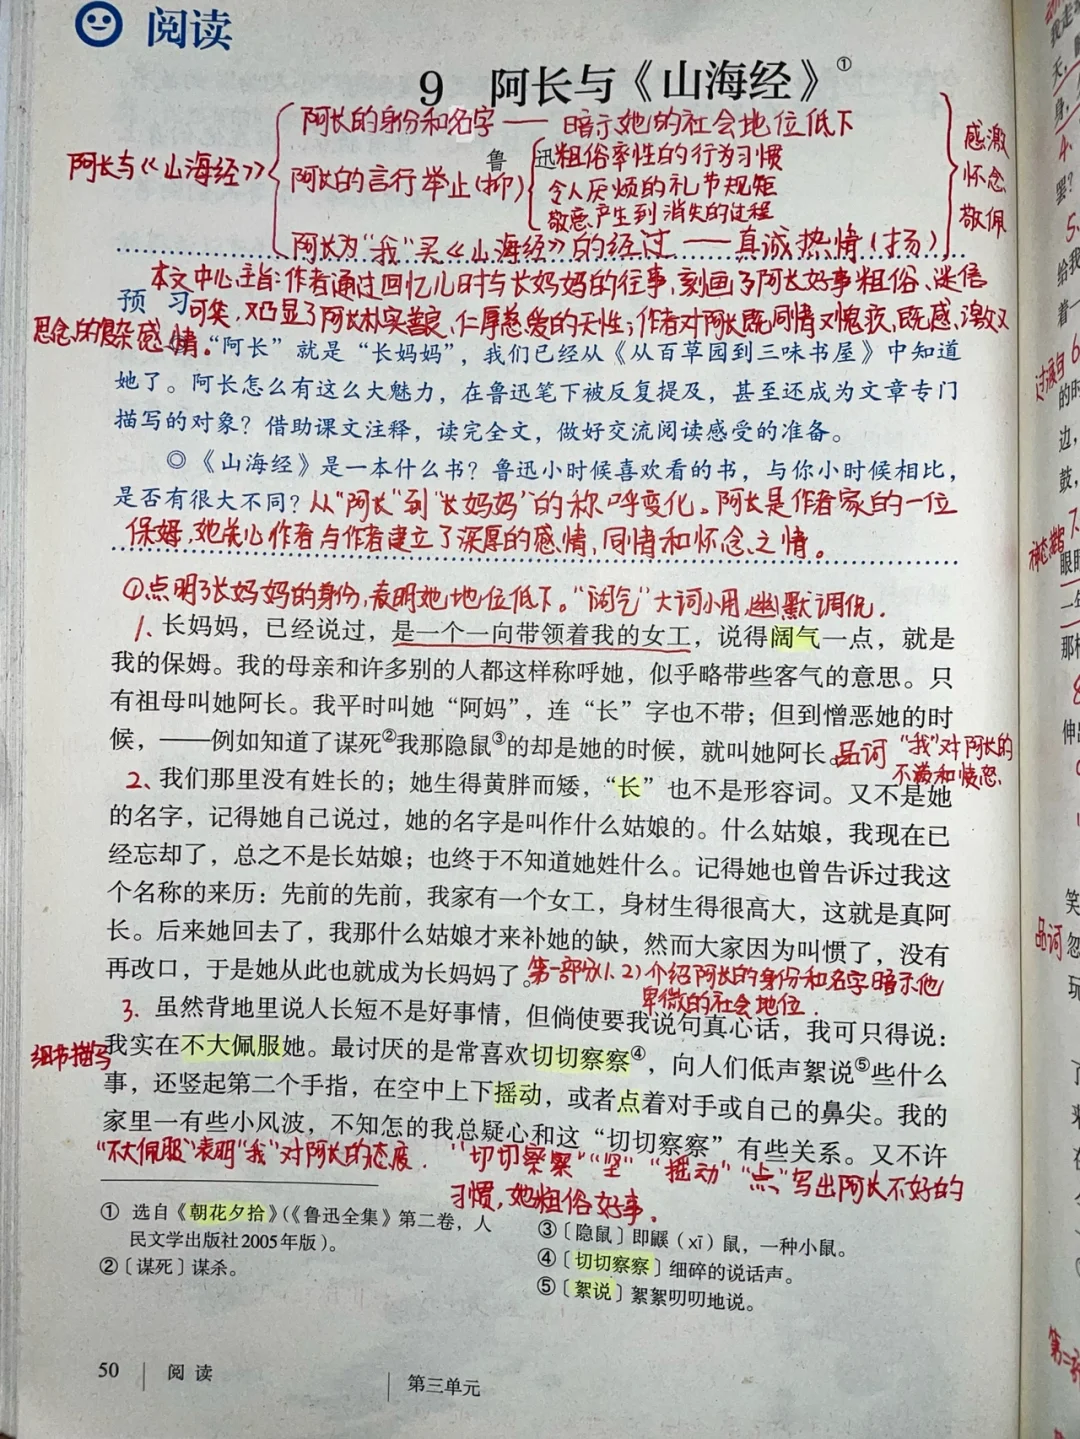 阅读
9 阿长与《山海经》①
阿长的身份和名字——暗示她的社会地位低下
阿长与《山海经》
阿长的言行举止(抑)
鲁 迅
粗俗率性的行为习惯
令人厌烦的礼节规矩
敬意产生到消失的过程
阿长为“我”买《山海经》的经过——真诚热情(扬)
感激
怀念
敬佩
本文中心主旨:作者通过回忆儿时与长妈妈的往事,刻画了阿长好事粗俗、迷信
预 习
可笑,又凸显了阿长朴实善良、仁厚慈爱的天性;作者对阿长既同情又愧疚,既感激又
思念的复杂感情。
“阿长”就是“长妈妈”,我们已经从《从百草园到三味书屋》中知道
她了。阿长怎么有这么大魅力,在鲁迅笔下被反复提及,甚至还成为文章专门
描写的对象?借助课文注释,读完全文,做好交流阅读感受的准备。
◎《山海经》是一本什么书?鲁迅小时候喜欢看的书,与你小时候相比,
是否有很大不同?从“阿长”到“长妈妈”的称呼变化。阿长是作者家的一位
保姆,她关心作者与作者建立了深厚的感情,同情和怀念之情。
①点明了长妈妈的身份,表明她地位低下。“阔气”大词小用,幽默调侃.
1、长妈妈,已经说过,是一个一向带领着我的女工,说得阔气一点,就是
我的保姆。我的母亲和许多别的人都这样称呼她,似乎略带些客气的意思。只
有祖母叫她阿长。我平时叫她“阿妈”,连“长”字也不带;但到憎恶她的时
候,——例如知道了谋死②我那隐鼠③的却是她的时候,就叫她阿长。品词 “我”对阿长的
不满和愤怒.
2、我们那里没有姓长的;她生得黄胖而矮,“长”也不是形容词。又不是她
的名字,记得她自己说过,她的名字是叫作什么姑娘的。什么姑娘,我现在已
经忘却了,总之不是长姑娘;也终于不知道她姓什么。记得她也曾告诉过我这
个名称的来历:先前的先前,我家有一个女工,身材生得很高大,这就是真阿
长。后来她回去了,我那什么姑娘才来补她的缺,然而大家因为叫惯了,没有
再改口,于是她从此也就成为长妈妈了。第一部分(1、2)介绍阿长的身份和名字暗示他
卑微的社会地位.
3. 虽然背地里说人长短不是好事情,但倘使要我说句真心话,我可只得说:
细节描写
我实在不大佩服她。最讨厌的是常喜欢切切察察④,向人们低声絮说⑤些什么
事,还竖起第二个手指,在空中上下摇动,或者点着对手或自己的鼻尖。我的
家里一有些小风波,不知怎的我总疑心和这“切切察察”有些关系。又不许
“不大佩服”表明“我”对阿长的态度. “切切察察”“竖”“摇动”“点”写出阿长不好的
习惯,她粗俗好事。
① 选自《朝花夕拾》(《鲁迅全集》第二卷,人
民文学出版社2005年版)。
②〔谋死〕谋杀。
③〔隐鼠〕即鼷(xī)鼠,一种小鼠。
④〔切切察察〕细碎的说话声。
⑤〔絮说〕絮絮叨叨地说。
50 阅 读
第三单元
给我
着一
过渡句
的时
边,
鼓,
神态描写
眼睛
那样
伸出
笑
品词
忽
玩